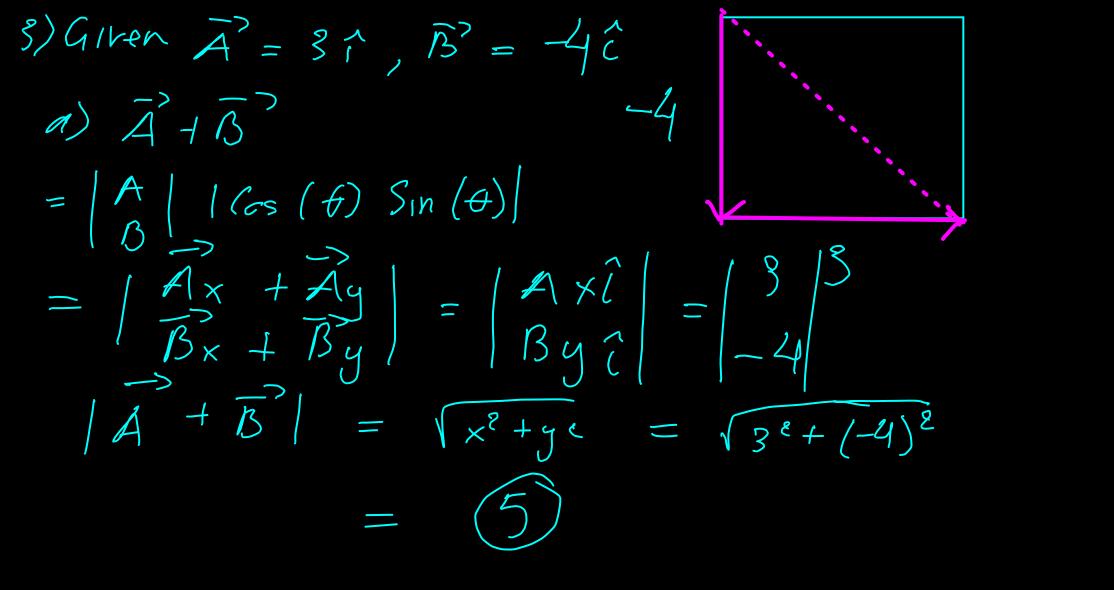 3) Given A⃗ = 3 î , B⃗ = -4 î
-4
a) A⃗ + B⃗
= | A B | | Cos (θ) Sin (θ) |
= | A⃗x + A⃗y B⃗x + B⃗y | = | A x î B y î | = | 3 -4 | 3
| A⃗ + B⃗ | = √x² + y² = √3² + (-4)²
= 5